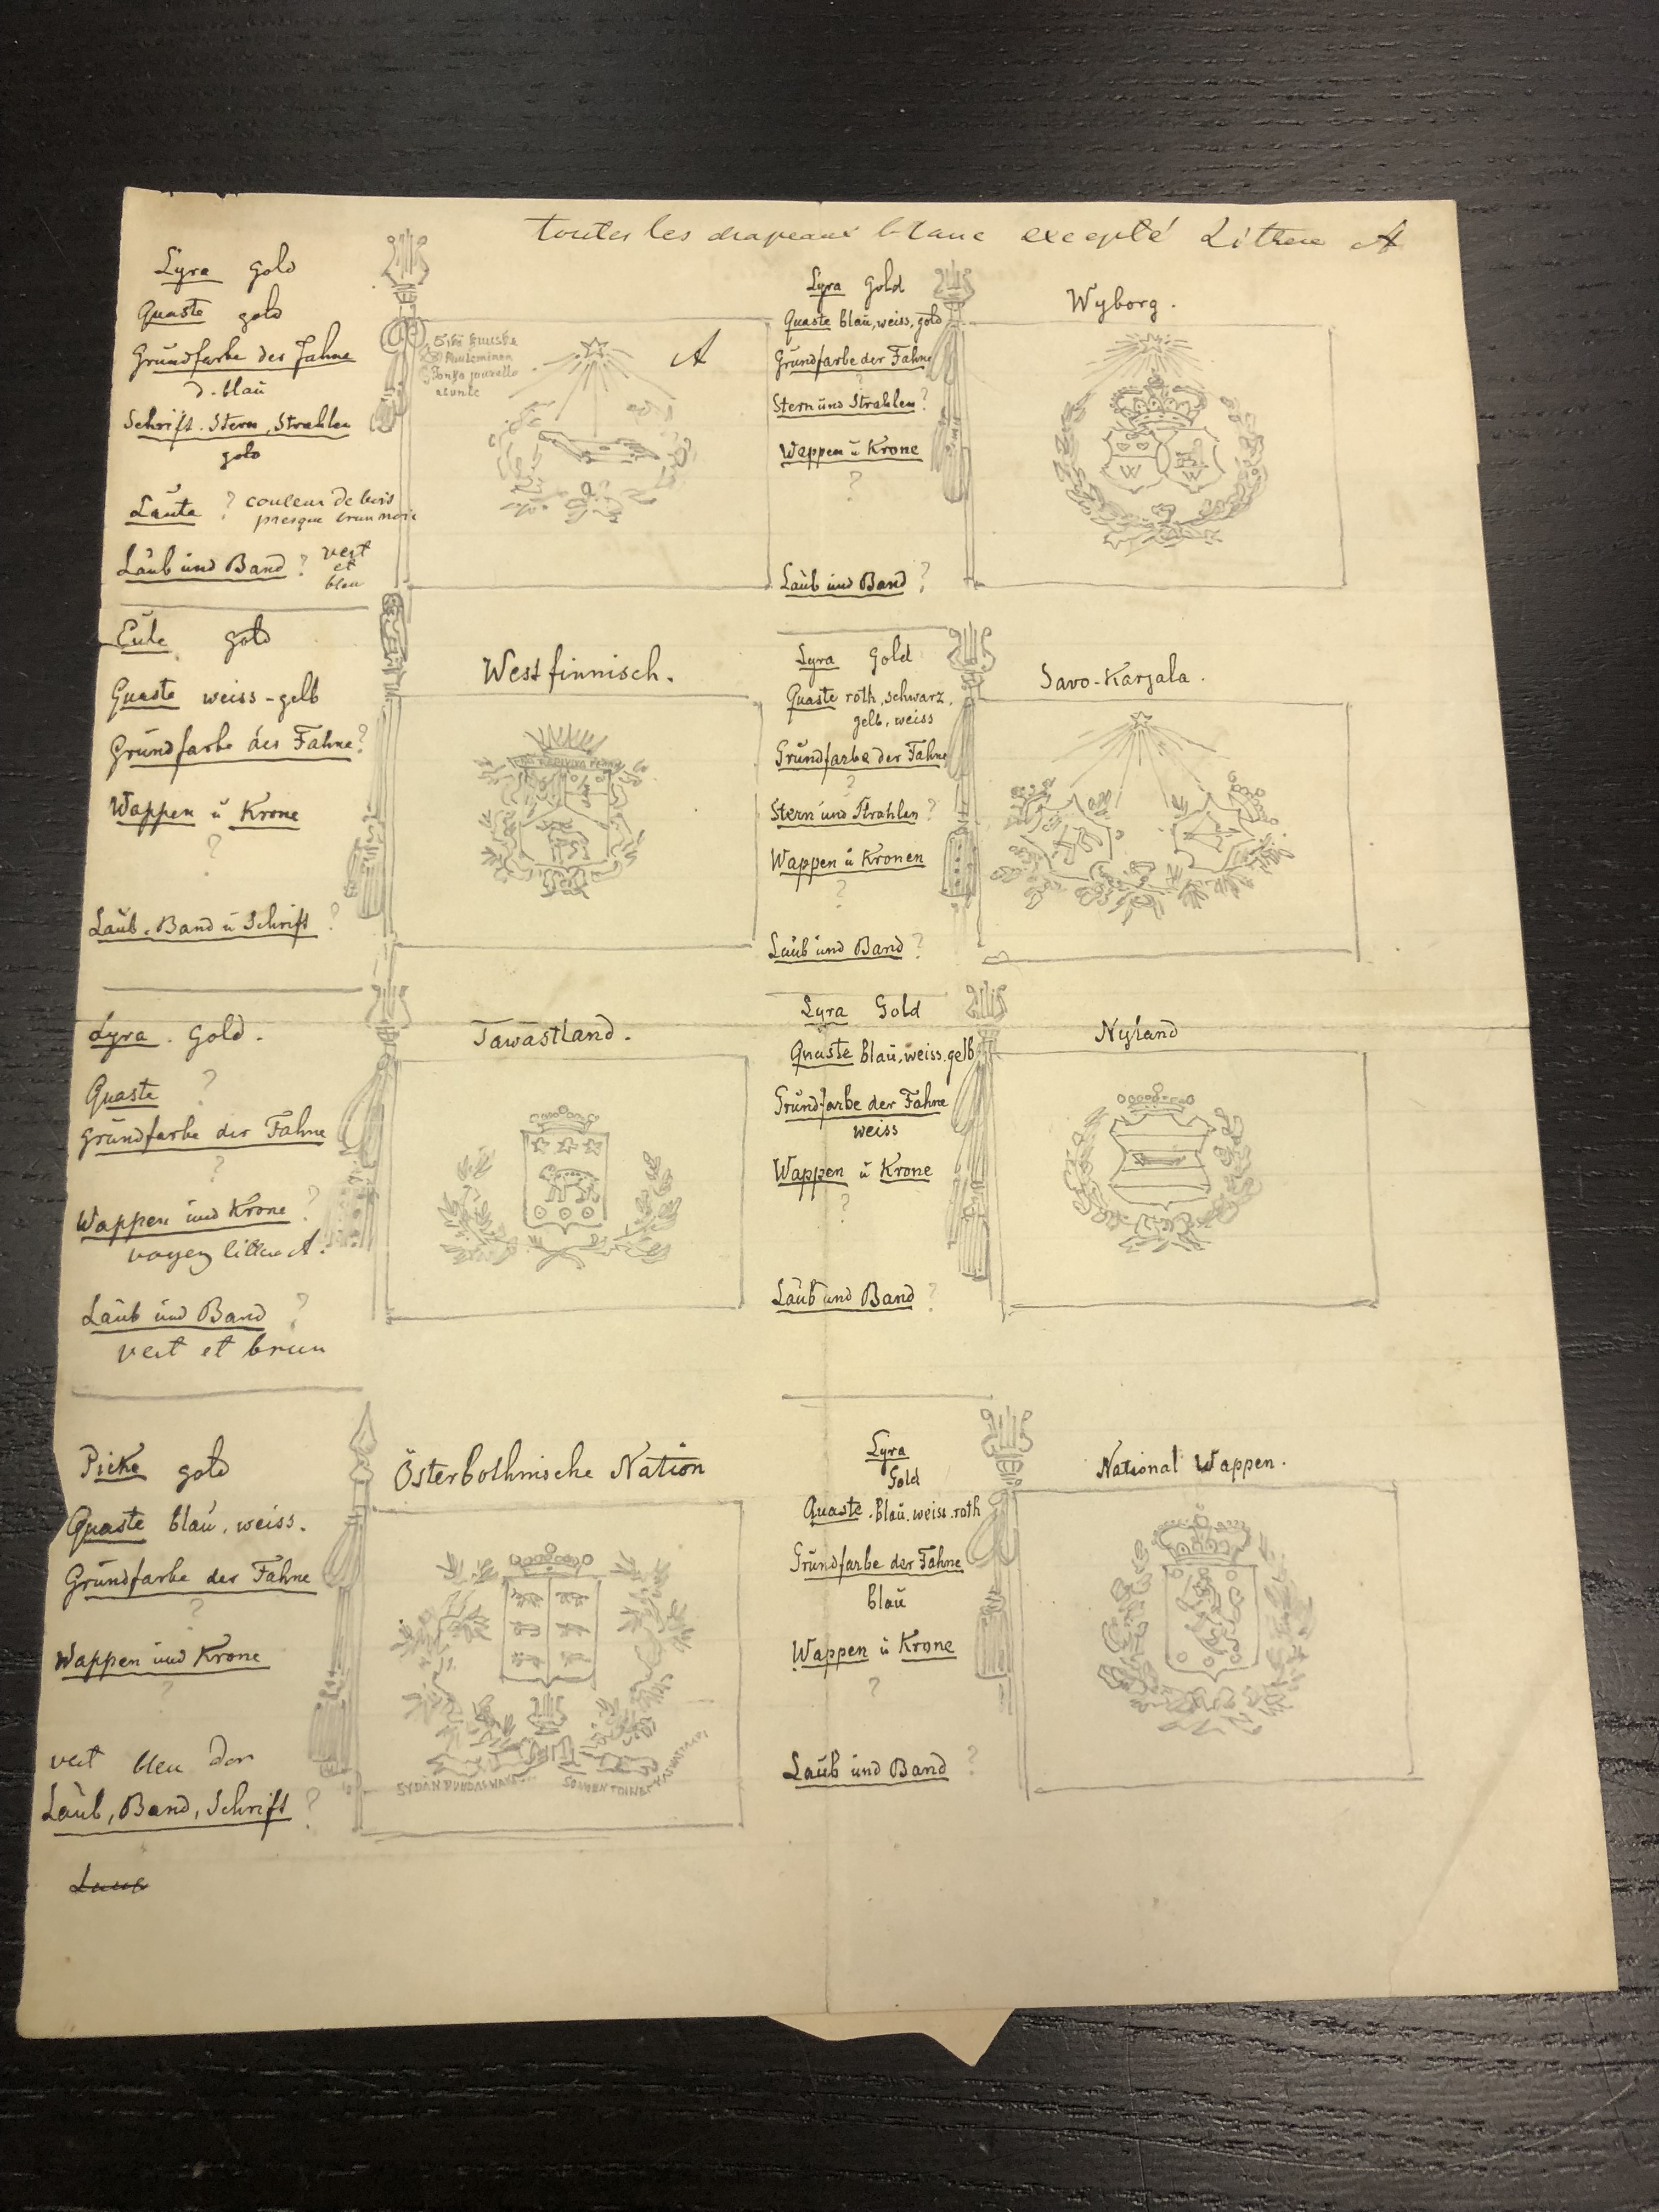 toutes les drapeaux blanc excepté Littera A
Lyra gold
Quaste gold
Grundfarbe der Fahne
d. blau
Schrift. Stern, Strahlen
gold
Laute ? couleur de bois
presque brun
Laub und Band ? vert
et
bleu
A
Lyra Gold
Quaste blau, weiss, gold
Grundfarbe der Fahne
?
Stern und Strahlen ?
Wappen u Krone
?
Laub und Band ?
Wyborg.
W W
Eule gold
Quaste weiss-gelb
Grundfarbe der Fahne ?
Wappen u Krone
?
Laub. Band u Schrift ?
Westfinnisch.
Lyra Gold
Quaste roth, schwarz,
gelb, weiss
Grundfarbe der Fahne
?
Stern und Strahlen ?
Wappen u Kronen
?
Laub und Band ?
Savo-Karjala.
Lyra. Gold.
Quaste ?
Grundfarbe der Fahne
?
Wappen und Krone ?
voyez littera A.
Laub und Band ?
vert et brun
Tawastland.
Lyra Gold
Quaste blau, weiss, gelb
Grundfarbe der Fahne
weiss
Wappen u Krone
?
Laub und Band ?
Nyland
Picke gold
Quaste blau, weiss.
Grundfarbe der Fahne
?
Wappen und Krone
?
vert bleu dor
Laub, Band, Schrift ?
Österbothnische Nation
Lyra
Gold
Quaste. blau. weiss. roth
Grundfarbe der Fahne
blau
Wappen u Krone
?
Laub und Band ?
National Wappen.